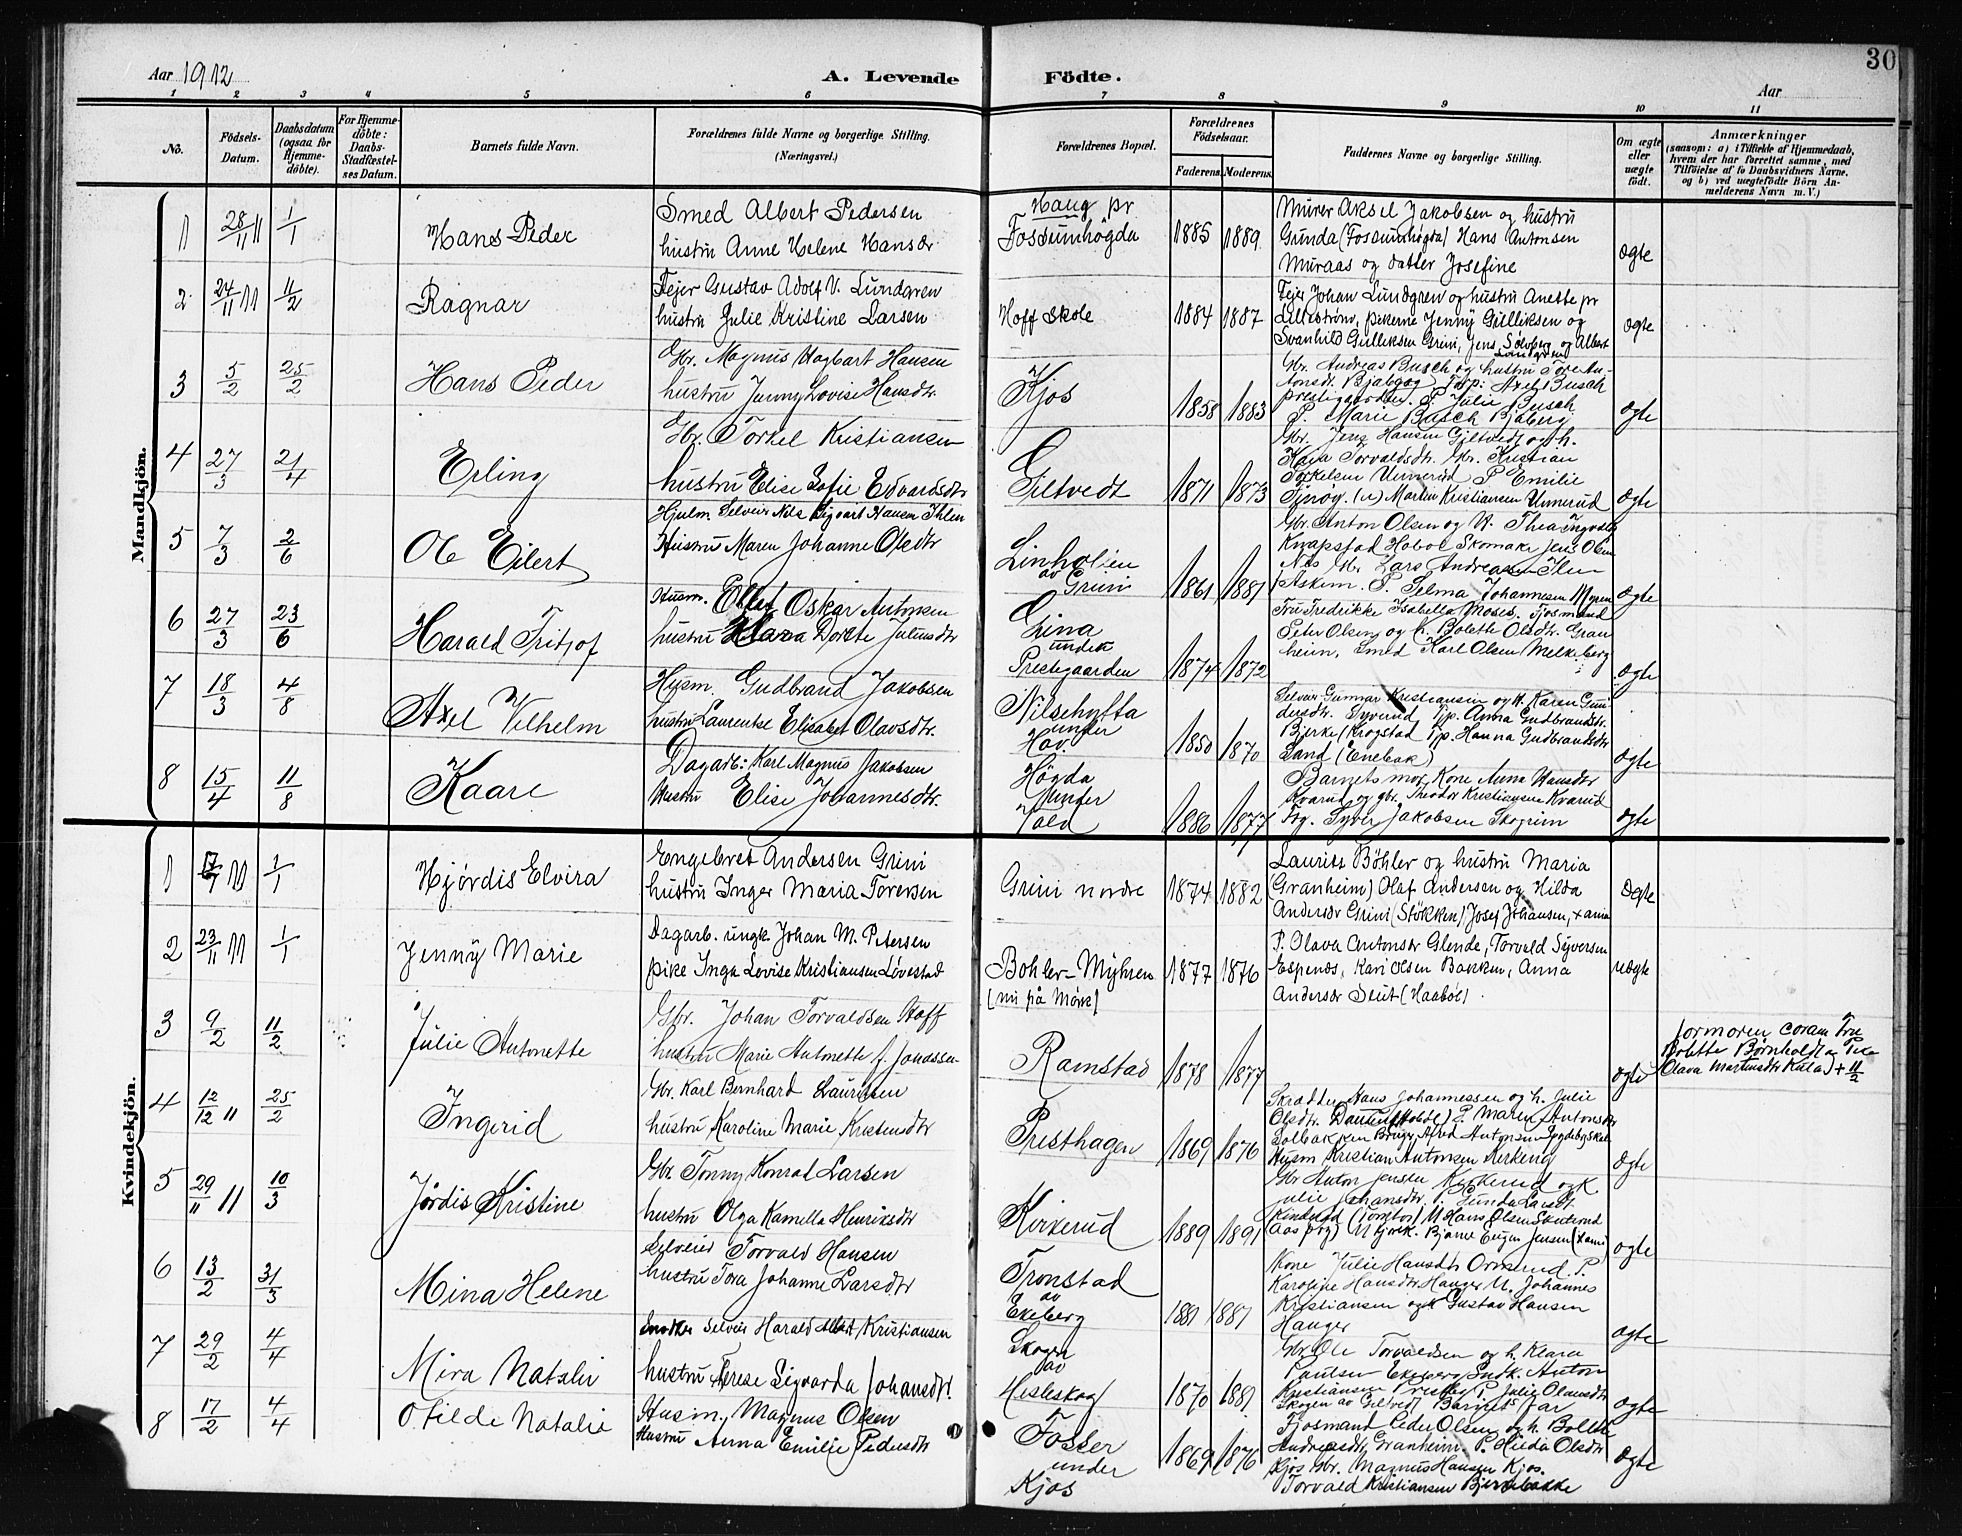 Aar 1912
A. Levende Födte.
Aar
30
1 2 3 4 5 6 7 8 9 10 11
No.
Födsels-Datum.
Daabsdatum (ogsaa for Hjemme-döbte).
For Hjemme-döbte: Daabs-Stadfæstel-ses Datum.
Barnets fulde Navn.
Forældrenes fulde Navne og borgerlige Stilling.
(Næringsvei.)
Forældrenes Bopæl.
Forældrenes Födselsaar.
Faderens. Moderens.
Faddernes Navne og borgerlige Stilling.
Om ægte eller uægte födt.
Anmærkninger
(saasom: a) i Tilfælde af Hjemmedaab,
hvem der har forrettet samme, med
Tilföielse af to Daabsvidners Navne.
og b) ved uægtefödte Börn An-
melderens Navn m. V.)
Mandkjön.
1 28/11 11 1/1 Hans Peder
Smed Albert Pedersen
hustru Anne Helene Hansdr
Haug pr
Fossumhögda 1885 1889
Murer Aksel Jakobsen og hustru
Gunda (Fossumhøgda) Hans Antonsen
Muraas og datter Josefine
ægte
2 24/11 11 11/2 Ragnar
Fejer Gustav Adolf V. Lundgren
hustru Julie Kristine Larsen
Hoff skole 1884 1887
Fejer Johan Lundgren og hustru Anette pr
Lilleström, pikerne Jenny Gulliksen og
Svanhild Gulliksen Grini, Jens Solberg og Albert
Lundgren
ægte
3 5/2 25/2 Hans Peder
Gbr. Magnus Hagbart Hansen
hustru Jenny Lovise Hansdtr.
Kjos 1858 1883
Gbr. Andreas Busch og hustru Tore An-
tonsdt. Axel Busch
P. Julie Busch
P. Marie Busch Bjaberg
ægte
4 27/3 21/4 Erling
Gbr. Torkel Kristiansen
hustru Elise Sofie Edvardsdtr
Giltvedt 1871 1873
Gbr. Jens Hansen Giltvedt og h.
Kaja Torvaldsdtr. Kristian
Torkelsen Unnerud P Emilie
Martin Kristiansen Unnerud
ægte
5 7/3 2/6 Ole Eilert
Hjulm. Selveier Nils Sigvart Hansen Ihlen
Hustru Maren Johanne Olsdtr
Linholien
av Grini 1861 1881
Gbr. Anton Olsen og H. Thea
Knapstad Hobøl Skomaker Jens Olsen
Næs Lars Andreassen Ilen
Askim. P. Selma Johannesen Myren
ægte
6 27/3 23/6 Harald Fritjof
Husm. Oskar Antonsen
hustru Klara Dorte Juliusdtr
Lina
under
Prestegaarden 1874 1872
Fru Fredrikke Isabella Moses. Fjosmand
Peter Olsen og h. Bolette Olsdtr. Gran
heim, Smed Karl Olsen Melkeberg
ægte
7 18/3 4/8 Axel Vilhelm
Husm. Gudbrand Jakobsen
hustru Laurentse Elisabet Olavsdtr.
Nilsehytta
under
Hov. 1850 1870
Selveier Gunnar Kristiansen og h. Karen Gun-
dersdtr. Syverud Anna Gudbrandsdtr.
Bjerke (Krogstad Hanna Gudbrandsdtr
Sand (Enebak)
ægte
8 15/4 11/8 Kaare
Dagarb: Karl Magnus Jakobsen
Hustru Elise Johannesdtr.
Högda
under 1886 1877
Barnets mor, Kone Anna Hansdtr
Kvarud og gbr. Theodor Kristiansen Kvarud
Syver Jakobsen Skogrim
ægte
Kvindekjön.
1 11 1/1 Hjórdis Elvira
Engebret Andersen Grini
hustru Inger Maria Torersen
Grini nordre 1874 1882
Laurits Böhler og hustru Maria
(Granheim) Olaf Andersen og Hilda
Andersdr Grini (Stökken) Josef Johansen,
ægte
2 23/11 11 1/1 Jenny Marie
Dagarb. ungk. Johan M. Petersen
pike Inga Lovise Kristiansen Lövestad
Bohler-Myhren 1877 1876
(nu på Mörk)
P. Olava Antonsdr Glende, Torvald Syversen
Espenes, Kari Olsen Bakken, Anna
Andersdr Skut (Haaböl).
uægte
3 9/2 11/2 Julie Antonette
Gbr. Johan Torvaldsen Hoff
hustru Marie Antonette f. Jonassen
Ramstad 1878 1877
ægte
formoren coram Fru
Bolette Børnholdt og Pike
Olava Martinsdtr Kula) + 11/2
4 12/12 11 25/2 Ingerid
Gbr. Karl Bernhard Lauritsen
hustru Karoline Marie Kristensdtr
Presthagen 1869 1876
Skrædder Hans Johannessen og h. Julie
Olsdtr. P. Maren Antonsdr
Solbakken Antonsen
Husm Kristian Antonsen Kirkeng
ægte
5 29/11 11 10/3 Jórdis Kristine
Gbr. Tonny Konrad Larsen
hustru Olga Kamilla Henriksdtr
Kirkerud 1889 1891
Gbr Anton Jensen Kirkerud og k
Julie Johansdtr. P. Gunda Larsdt.
Hans Olsen
Bjarne Eugen Jensen
ægte
6 13/2 31/3 Mina Helene
Selveier Torvald Hansen
hustru Tora Johanne Larsdtr
Tronstad
av
Ekeberg 1881 1881
Kone Julie Hansdtr Ormerud P.
Karoline Hansdtr Hauger U. Johannes
Kristiansen og k Gustav Hansen
Hauger
ægte
7 29/2 4/4 Mira Natali
Snedker Selveier Harald Kristiansen
hustru Terese Sigvarda Johansdt!
Skogen
av
Hesleskog 1870 1881
Gbr. Ole Torvaldsen og h. Klara
Paulsen Ekeberg Anton
Kristiansen P. Julie Olausdtr
Skogen av Giltvedt Barnets far
ægte
8 17/2 4/4 Otilde Natalie
Husm. Magnus Olsen
Hustru Anna Emilie Pedersdtr
Fosser
under
Kjos 1869 1876
Fjosmand Peder Olsen og h. Bolette
Andreasdt. Granheim. P. Hilda Olsdtr
Kjos Gbr. Magnus Hansen Kjos.
Torvald Kristiansen Bjerkebakke
ægte